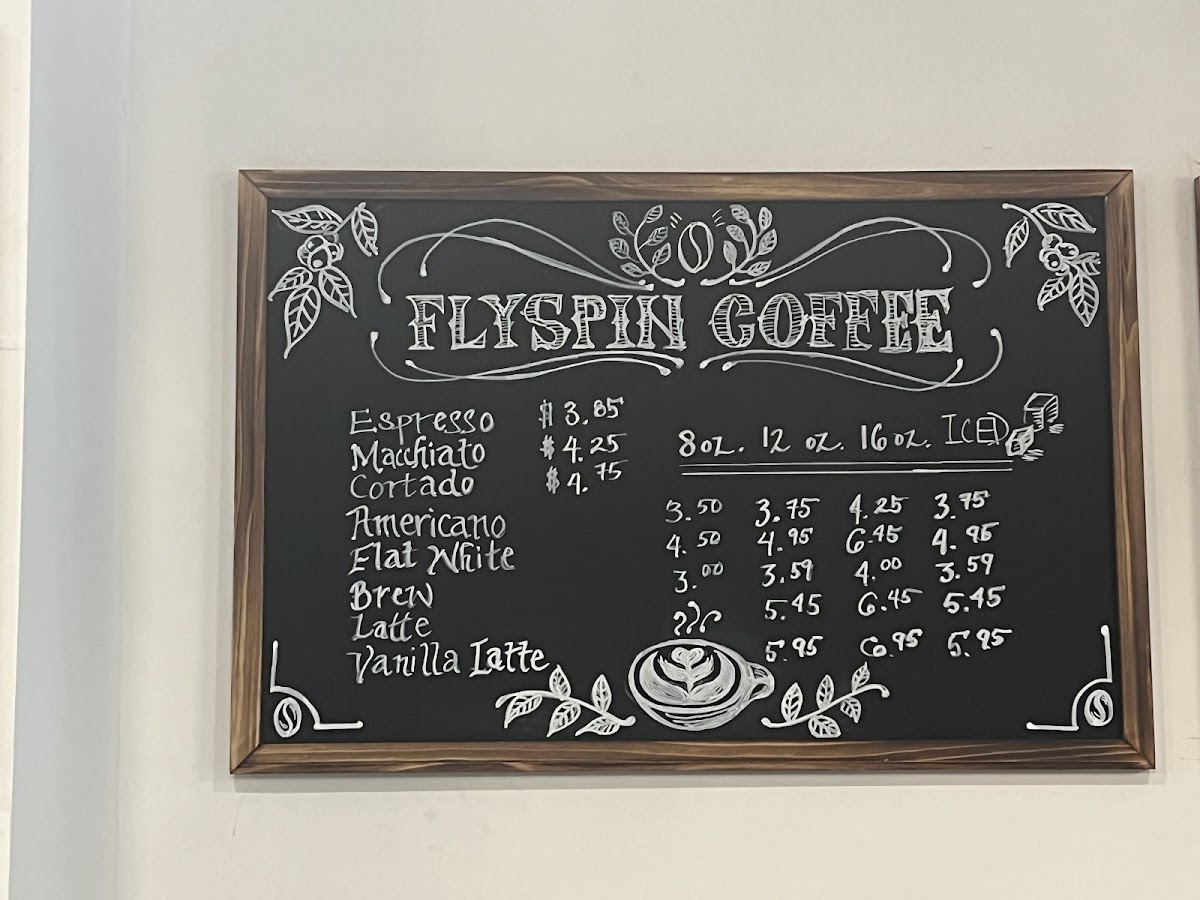 FLYSPIN COFFEE
Espresso $ 3.85
Macchiato $ 4.25
Cortado $ 4.75
8 oz. 12 oz. 16 oz. ICED
Americano 3.50 3.75 4.25 3.75
Flat White 4.50 4.95 6.45 4.95
Brew 3.00 3.59 4.00 3.59
Latte 5.45 6.45 5.45
Vanilla Latte 5.95 6.95 5.95